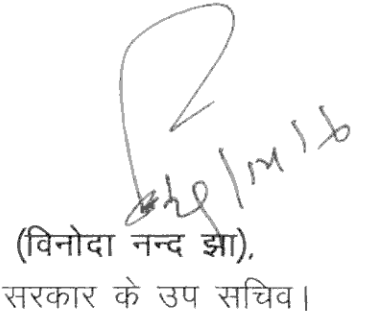 (विनोदा नन्द झा),
सरकार के उप सचिव।